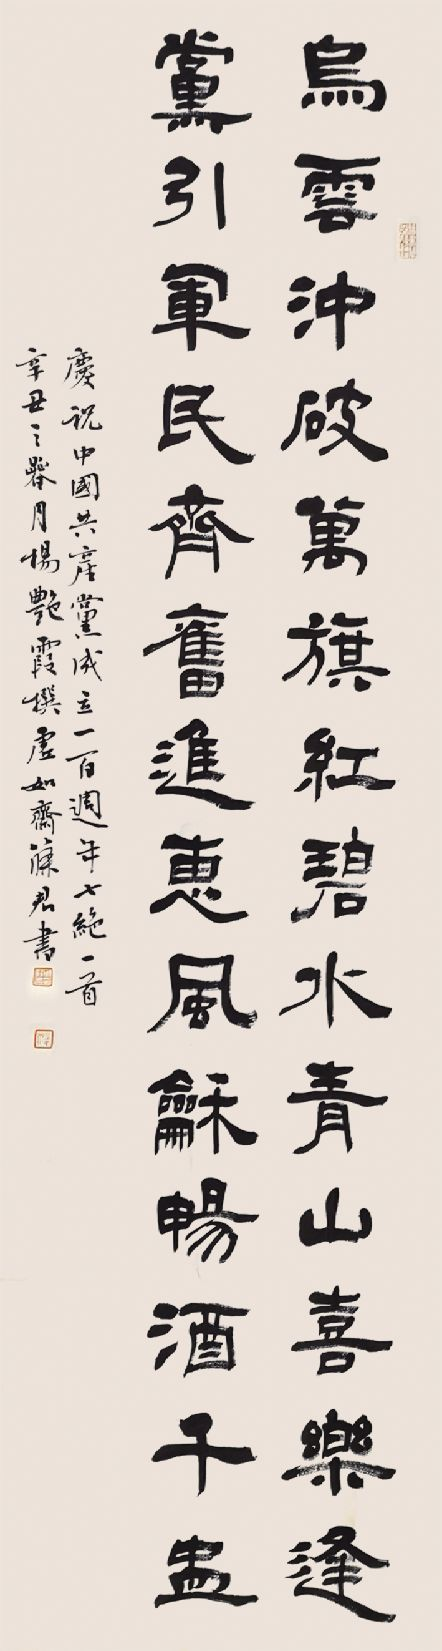 烏雲沖破萬旗紅碧水青山喜樂逢
黨引軍民齊奮進惠風龢暢酒千盅
慶祝中國共產黨成立一百週年七絕一首
辛丑之暮月楊艷霞撰虛如齋篠君書